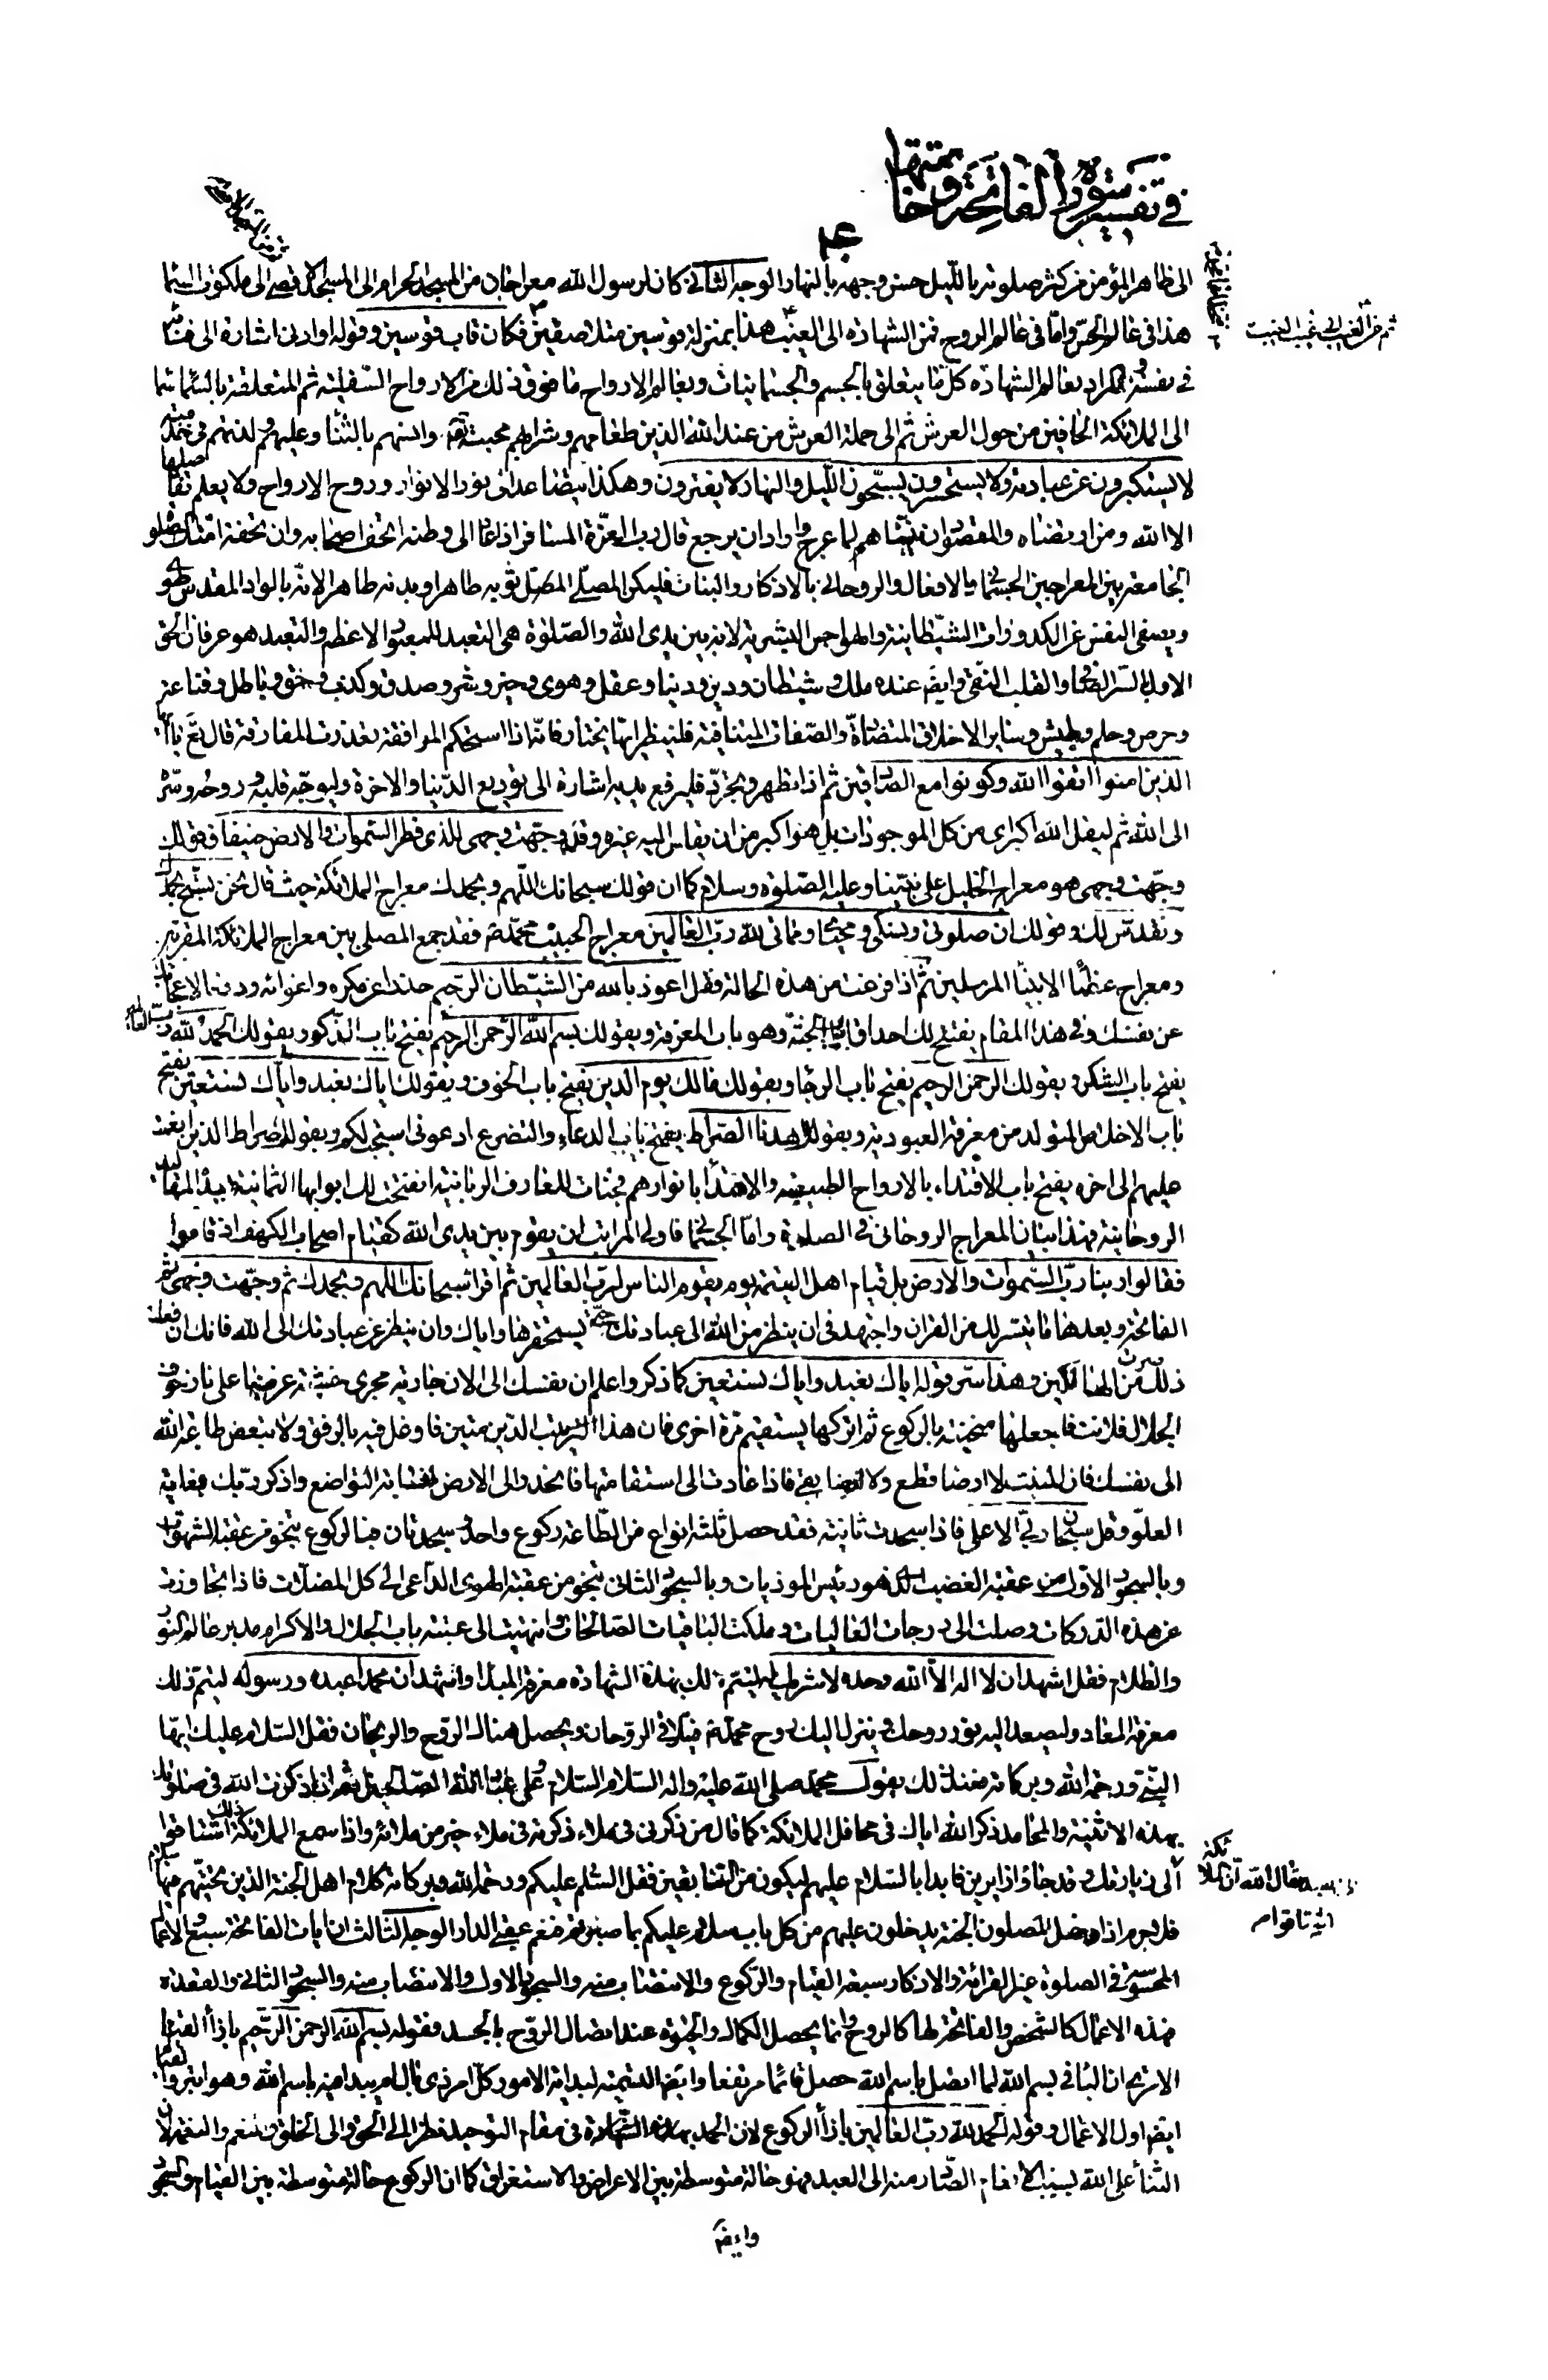 في تفسير سورة الفاتحة وخاتمتها
الى ظاهر المؤمن من كثر صلوته بالليل حسن وجهه بالنهار الوجه الثاني كان لرسول الله معراجان من المسجد الحرام الى المسجد الاقصى الى ملكوت السماء
هذا في عالم الحس واما في عالم الروح فمن الشهادة الى الغيب هذا بمنزلة قوسين متلاصقين فكان قاب قوسين وقوله او ادنى اشارة الى فنائه
ثم من الغيب الى غيب الغيب
في نفسه والمراد بعالم الشهادة كل ما يتعلق بالجسم والجسمانيات وبعالم الارواح ما فوق ذلك من الارواح السفلية ثم المتعلقة بالسماء سماء
الى الملائكة الحافين من حول العرش ثم الى حملة العرش من عند الله الذين طعامهم وشرابهم محبته وانسهم بالثناء عليه ولذتهم في خدمته
لا يستكبرون عن عبادته ولا يستحسرون يسبحون الليل والنهار لا يفترون وهكذا يتصاعد الى نور الانوار وروح الارواح ولا يعلم تفاصيلها
الا الله ومن ارتضاه والمقصود ان نبينا لما عرج واراد ان يرجع قال رب العزة المسافر اذا عاد الى وطنه اتحف اصحابه وان تحفة امتك الصلوة
الجامعة بين المعراجين الجسماني بالافعال والروحاني بالاذكار والنيات فليكن المصلي ثوبه طاهرا وبدنه طاهرا لانه بالواد المقدس طوى
ويصفى النفس عن الكدورات الشيطانية والهواجس البشرية لانه بين يدى الله والصلوة هى التعبد للمعبود الاعظم والتعبد هو عرفان الحق
الاول بالسر الصافى والقلب النقى وايضا عنده ملك وشيطان ودين ودنيا وعقل وهوى وخير وشر وصدق وكذب وحق وباطل وقناعة
وحرص وحلم وطيش وساير الاخلاق المتضادة والصفات المتنافية فلينظر ايها يختار فانه اذا استحكم الموافقة تعذرت المفارقة قال تع يا ايها
الذين امنوا اتقوا الله وكونوا مع الصادقين ثم اذا تطهر وتجرد فليرفع يديه اشارة الى توديع الدنيا والاخرة وليوجه قلبه وروحه وسره
الى الله ثم ليقل الله اكبر اى من كل الموجودات بل هو اكبر من ان يقاس اليه غيره وقل وجهت وجهى للذى فطر السموات والارض حنيفا فقولك
وجهت وجهى هو معراج الخليل على نبينا وعليه الصلوة والسلام كما ان قولك سبحانك اللهم وبحمدك معراج الملائكة حيث قال نحن نسبح بحمدك
ونقدس لك وقولك ان صلوتى ونسكى ومحياى ومماتى لله رب العالمين معراج الحبيب محمد ص فقد جمع المصلى بين معراج الملائكة المقربين
ومعراج عظماء الانبياء المرسلين ثم اذا فرغت من هذه الحالة فقل اعوذ بالله من الشيطان الرجيم حذرا عن مكره واغوائه ودفعا لاعجابك
عن نفسك وفي هذا المقام يفتح لك احد ابواب الجنة وهو باب المعرفة وبقولك بسم الله الرحمن الرحيم يفتح باب الذكر وبقولك الحمد لله رب العالمين
يفتح باب الشكر وبقولك الرحمن الرحيم يفتح باب الرجاء وبقولك مالك يوم الدين يفتح باب الخوف وبقولك اياك نعبد واياك نستعين يفتح
باب الاخلاص المتولد من معرفة العبودية وبقولك اهدنا الصراط يفتح باب الدعاء والتضرع ادعونى استجب لكم وبقولك صراط الذين انعمت
عليهم الى اخره يفتح باب الاقتداء بالارواح الطيبة والاهتداء بانوارهم فجنات المعارف الربانية انفتحت لك ابوابها الثمانية بهذه المقاليد
الروحانية فهذا بيان المعراج الروحاني في الصلوة واما الجسماني فاولى المراتب ان يقوم بين يدى الله كقيام اصحاب الكهف اذ قاموا
فقالوا ربنا رب السموات والارض بل قيام اهل القيمة يوم يقوم الناس لرب العالمين ثم اقرأ سبحانك اللهم وبحمدك ثم وجهت وجهى ثم
الفاتحة وبعدها ما تيسر لك من القران واجتهد في ان ينظر من الله الى عبادتك حتى يستحقرها واياك وان ينظر من عبادتك الى الله فانك ان فعلت
ذلك صرت من الهالكين وهذا سر قوله اياك نعبد واياك نستعين كما ذكر واعلم ان نفسك الى الان جارية مجرى خشبة عرضتها على نار خوف
الجلال فلانت فاجعلها منحنية بالركوع ثم اتركها يستقيم مرة اخرى فان هذا الدين متين فاوغل فيه بالرفق ولا تبغض طاعة الله
الى نفسك فان المنبت لا ارضا قطع ولا ظهرا ابقى فاذا عادت الى استقامتها فانحدر الى الارض بغاية التواضع واذكر ربك بغاية
العلو وقل سبحان ربى الاعلى فاذا سجدت ثانية فقد حصل ثلثة انواع من الطاعة ركوع واحد وسجدتان فبالركوع ينجو من عقبة الشهوة
وبالسجود الاول من عقبة الغضب الذى هو رئيس الموذيات وبالسجود الثانى ينجو من عقبة الهوى الداعى الى كل المضلات فاذا تجاوزت
عن هذه الدركات وصلت الى درجات العاليات وملكت الباقيات الصالحات وانتهيت الى عتبة باب الجلال والاكرام مدبر عالم النور
والظلام فقل اشهد ان لا اله الا الله وحده لا شريك له ليتم لك بهذه الشهادة معرفة المبدا واشهد ان محمدا عبده ورسوله ليتم ذلك
معرفة المعاد وليصعد اليه نور روحك وينزل اليك روح محمد ص فيتلاقى الروحان ويحصل هناك الروح والريحان فقل السلام عليك ايها
النبى ورحمة الله وبركاته فعند ذلك يقول محمد صلى الله عليه واله السلام علينا وعلى عباد الله الصالحين ثم اذا ذكرت الله في صلوتك
بهذه الاثنية والمحامد ذكر الله اياك في محافل الملائكة كما قال من ذكرنى في ملاء ذكرته في ملاء خير من ملائه واذا سمع الملائكة ذلك اشتاقوا
الى زيارتك وقد جاؤا زايرين فابدا بالسلام عليهم ليكون من السابقين فقل السلم عليكم ورحمة الله وبركاته كلام اهل الجنة الذين تحيتهم فيها سلام
فلا جرم اذا دخل المصلون الجنة يدخلون عليهم من كل باب سلام عليكم بما صبرتم فنعم عقبى الدار الوجه الثالث ان ايات الفاتحة سبع والاعمال
المحسوسة في الصلوة غير القرائة والاذكار سبعة القيام والركوع والانتصاب منه والسجود الاول والانتصاب منه والسجود الثانى والقعدة
فهذه الاعمال كالشخص والفاتحة لها كالروح وانما يحصل الكمال والحيوة عند اتصال الروح بالجسد فقوله بسم الله الرحمن الرحيم بازاء القيام
الا ترى ان الباء في بسم الله لما اتصل باسم الله حصل قائما مرتفعا وايضا التسمية لبداية الامور كل امر ذى بال لم يبدا فيه باسم الله فهو ابتر والقيام
ايضا اول الاعمال وقوله الحمد لله رب العالمين بازاء الركوع لان الحمد في مقام التوحيد نظر الى الحق والى الخلق والمنعم والنعمة لان
الثناء على الله بسبب الانعام الصادر منه الى العبد فهو حالة متوسطة بين الاعراض والاستغراق كما ان الركوع حالة متوسطة بين القيام والسجود
وايضا